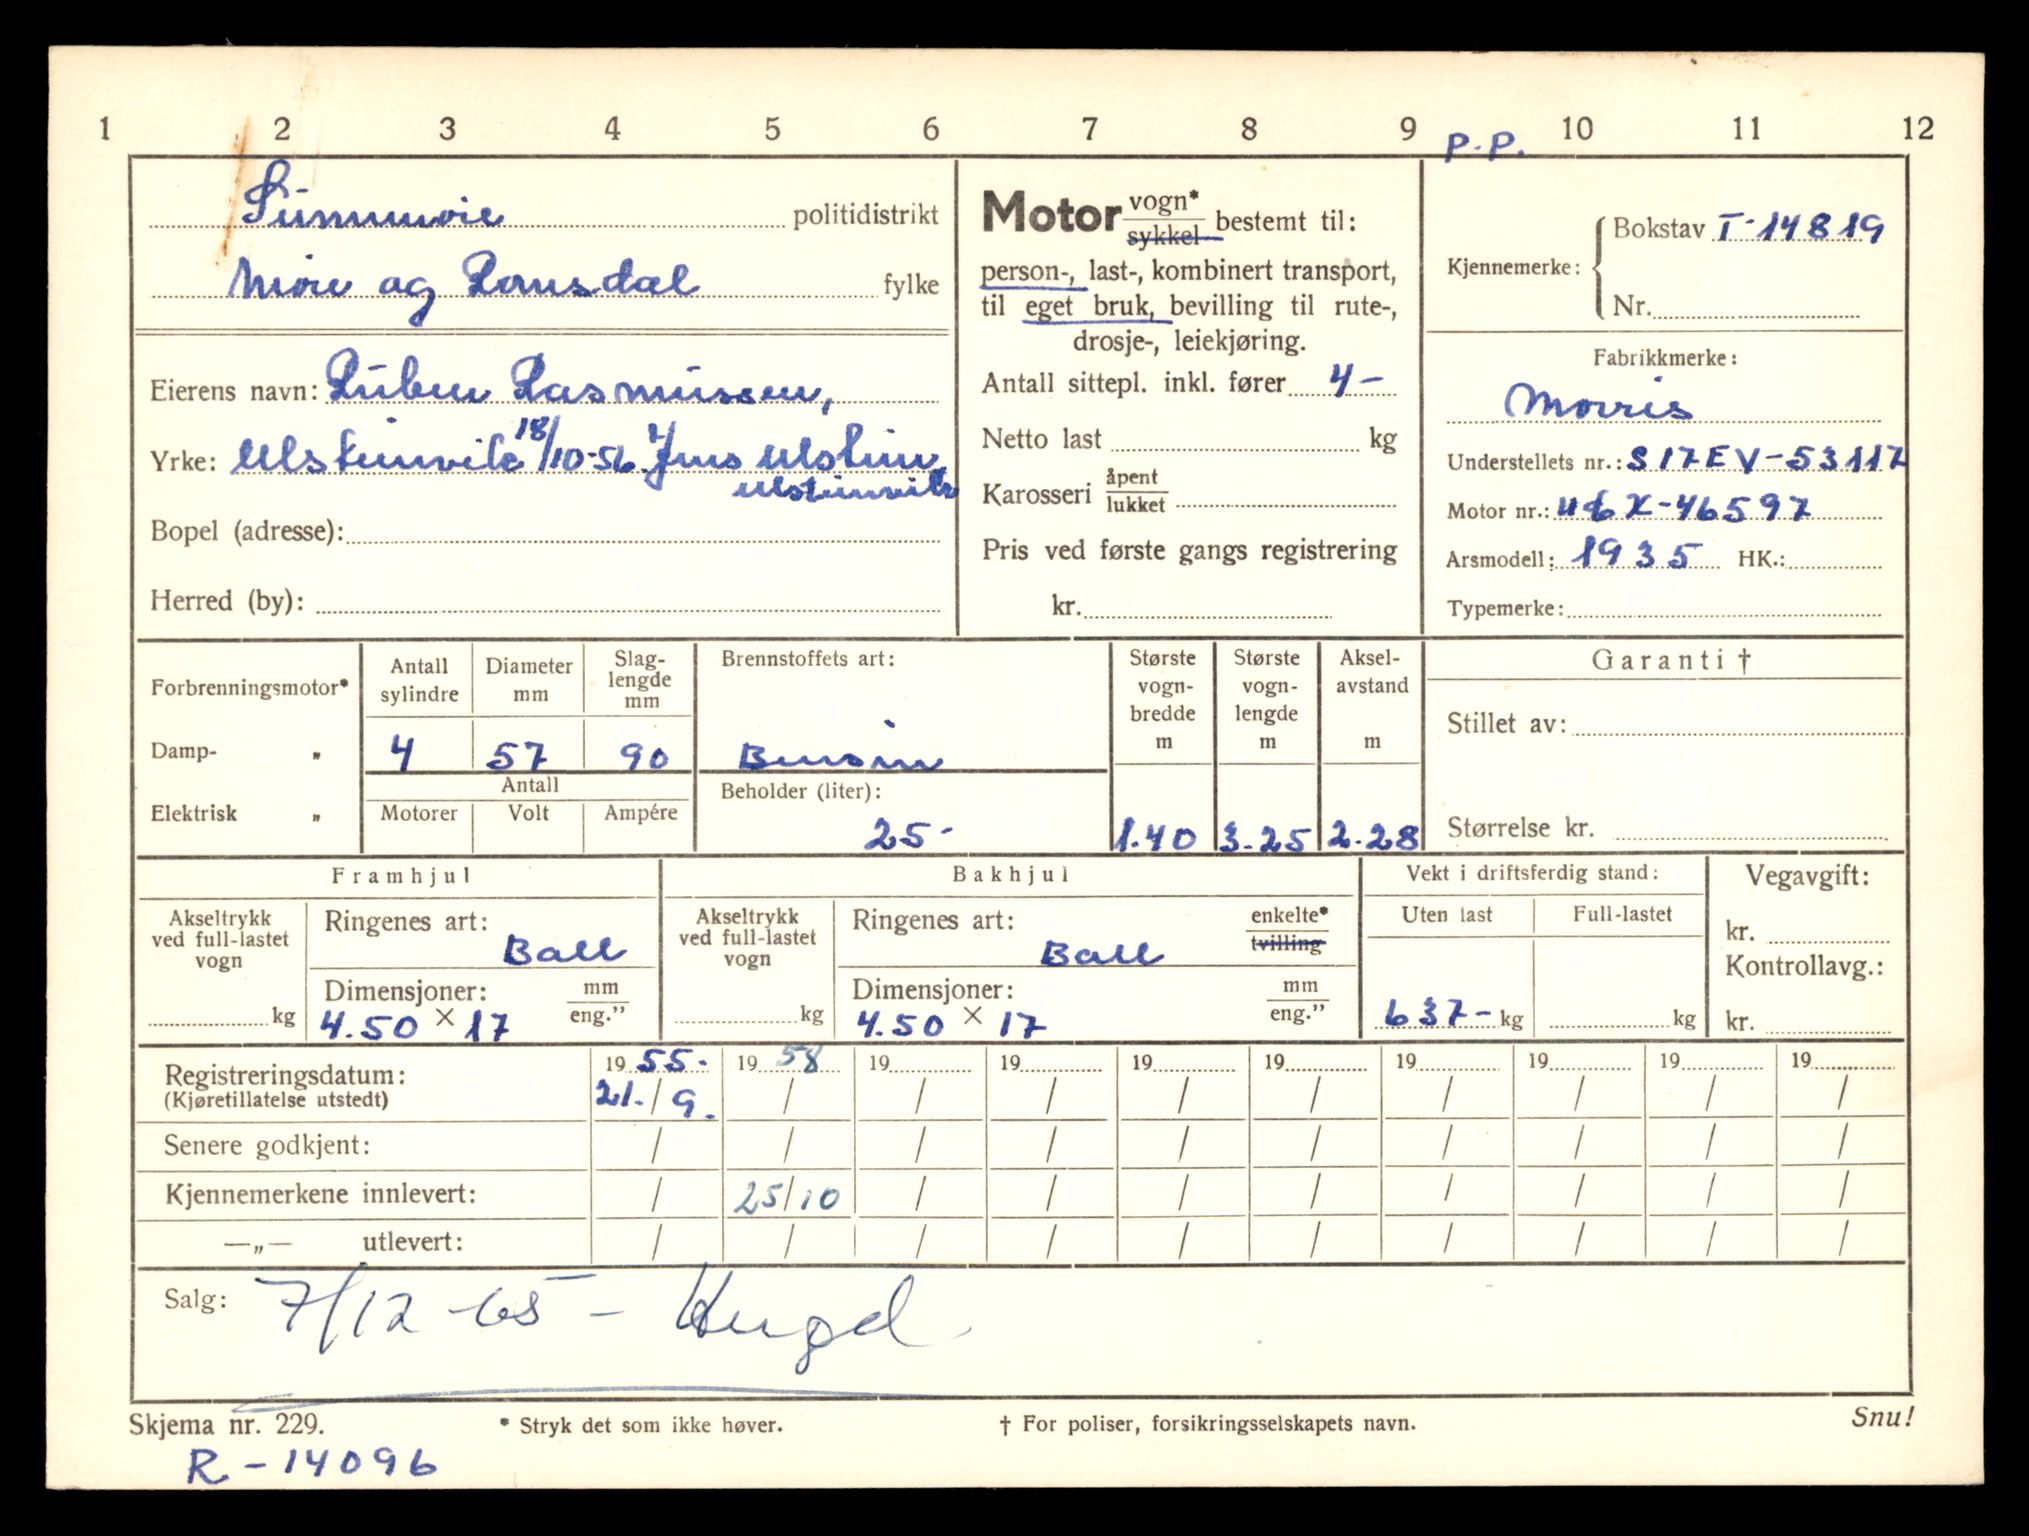 1 2 3 4 5 6 7 8 9 10 11 12
P.P.
Sunnmøre politidistrikt
Møre og Romsdal fylke
Eierens navn: Ruben Rasmussen,
Yrke: Ulsteinvik 18/10-56 Jens Ulstein
Ulsteinvik
Bopel (adresse):
Herred (by):
Motor vogn* sykkel bestemt til:
person-, last-, kombinert transport,
til eget bruk, bevilling til rute-,
drosje-, leiekjøring.
Antall sittepl. inkl. fører 4-
Netto last kg
Karosseri åpent lukket
Pris ved første gangs registrering
kr.
Kjennemerke: Bokstav T-14819
Nr.
Fabrikkmerke:
Morris
Understellets nr.: S17EV-53117
Motor nr.: U6X-46597
Arsmodell: 1935 HK.:
Typemerke:
Forbrenningsmotor*
Damp- „
Elektrisk „
Antall sylindre
Diameter mm
Slag-
lengde
mm
4 57 90
Antall
Motorer Volt Ampére
Brennstoffets art:
Bensin
Beholder (liter):
25-
Største
vogn-
bredde
m
1.40
Største
vogn-
lengde
m
3.25
Aksel-
avstand
m
2.28
Garanti †
Stillet av:
Størrelse kr.
Framhjul
Akseltrykk
ved full-lastet
vogn
kg
Ringenes art:
Ball
Dimensjoner: mm eng."
4.50 × 17
Bakhjul
Akseltrykk
ved full-lastet
vogn
kg
Ringenes art: enkelte* tvilling
Ball
Dimensjoner: mm eng."
4.50 × 17
Vekt i driftsferdig stand:
Uten last Full-lastet
637- kg kg
Vegavgift:
kr.
Kontrollavg.:
kr.
Registreringsdatum: 19 55. 19 58 19 19 19 19 19 19 19 19
(Kjøretillatelse utstedt) 21./9. / / / / / / / / /
Senere godkjent: / / / / / / / / / /
Kjennemerkene innlevert: / 25/10 / / / / / / / /
—„— utlevert: / / / / / / / / / /
Salg: 7/12-65 -
Skjema nr. 229. * Stryk det som ikke høver. † For poliser, forsikringsselskapets navn. Snu!
R-14096